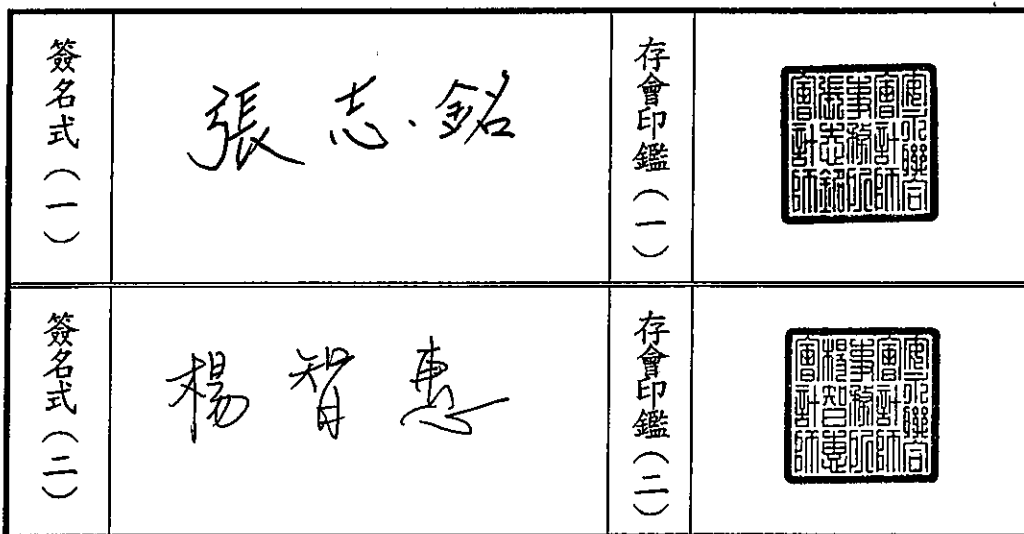 簽名式（一）
張志銘
存會印鑑（一）
安永聯合
會計師
事務所
張志銘
會計師
簽名式（二）
楊智惠
存會印鑑（二）
安永聯合
會計師
事務所
楊智惠
會計師